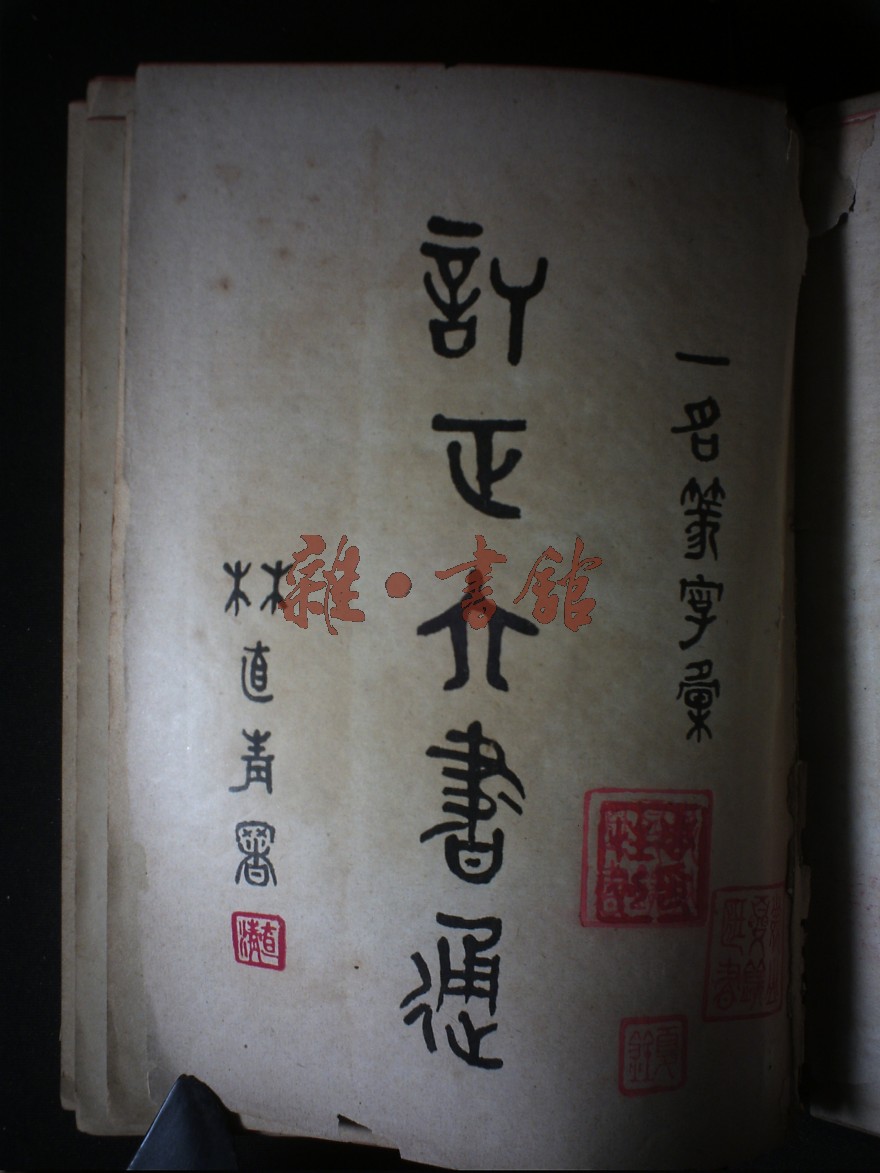 一名篆字彙
訂正六書通
林直青署
直清
雜·書館